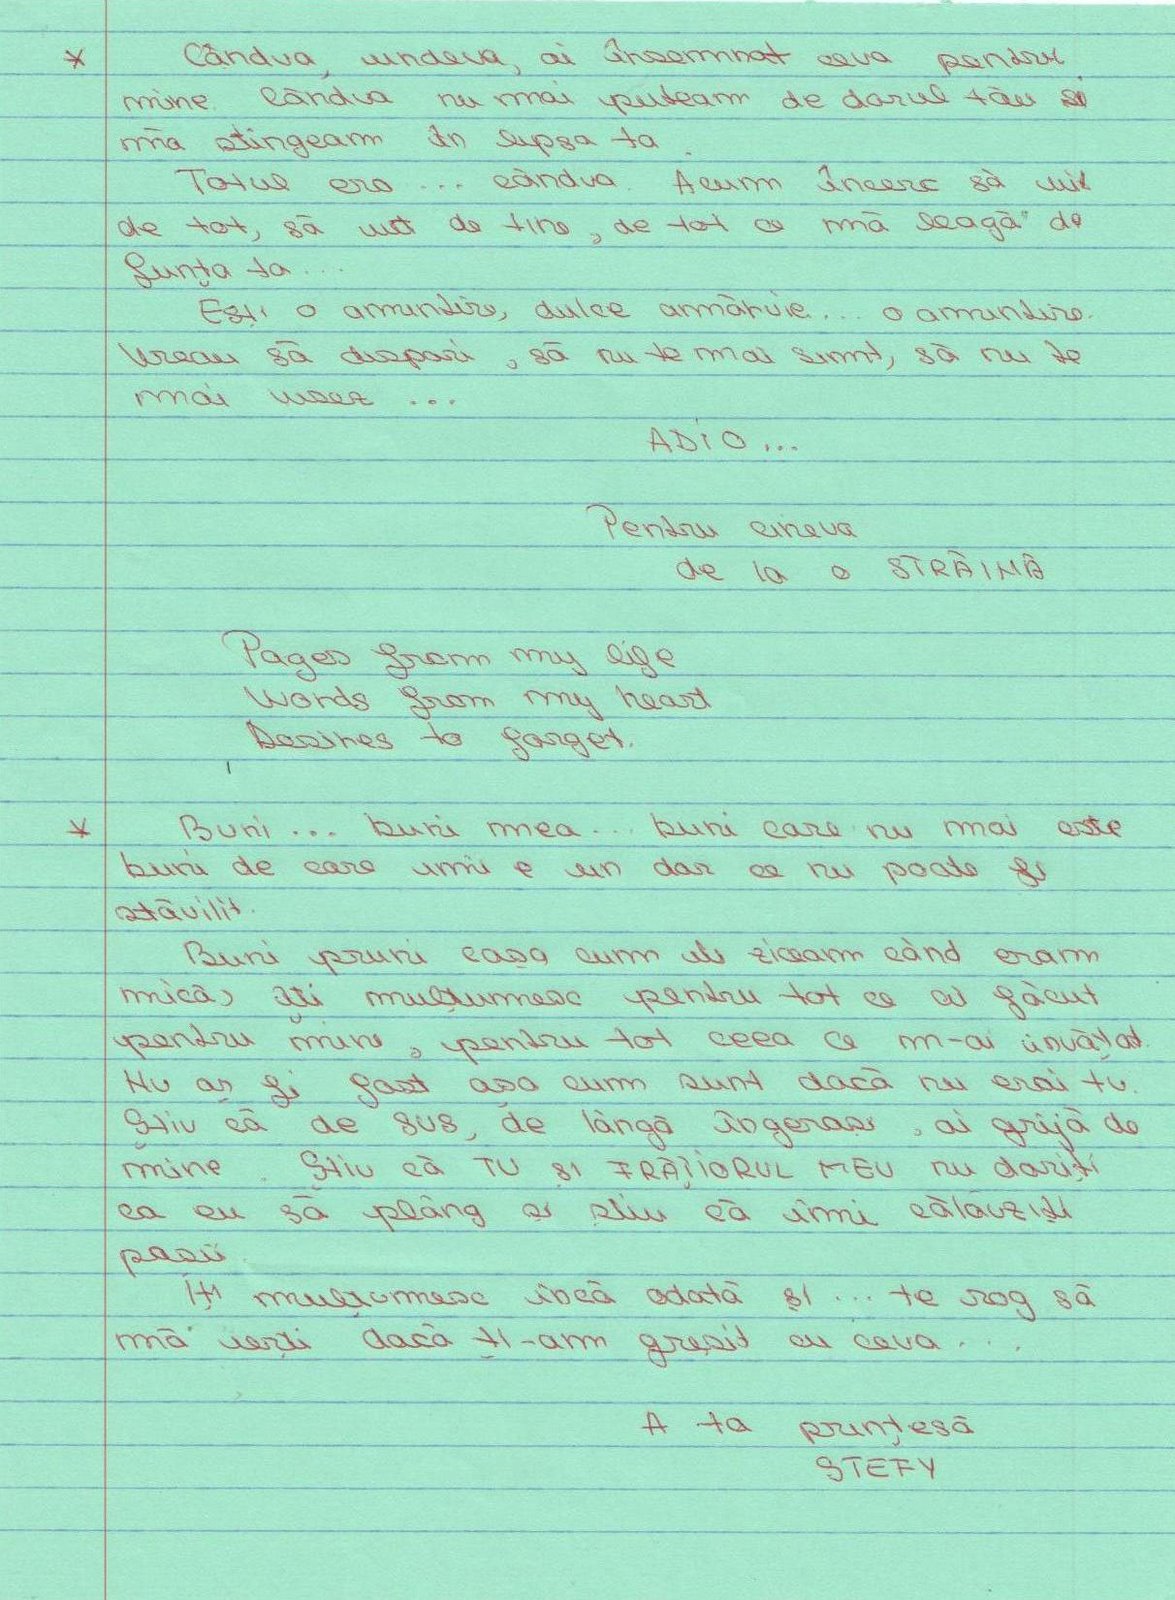 * Cândva, undeva, ai însemnat ceva pentru
mine. Cândva nu mai puteam de dorul tău și
mă stingeam în lipsa ta.
Totul era ... cândva. Acum încerc să uit
de tot, să uit de tine, de tot ce mă leagă de
ființa ta ...
Ești o amintire, dulce amăruie ... o amintire.
Vreau să dispari, să nu te mai simt, să nu te
mai visez ...
ADIO ...
Pentru cineva
de la o STRĂINĂ
Pages from my life
Words from my heart
Desires to forget.
* Buni ... buni mea ... buni care nu mai este
buni de care imi e un dor ce nu poate fi
stăvilit.
Buni pruni casa cum iti ziceam când eram
mică, îți mulțumesc pentru tot ce ai făcut
pentru mine, pentru tot ceea ce m-ai învățat.
Nu aș fi fost așa cum sunt dacă nu erai tu.
Știu că de sus, de lângă îngerași, ai grijă de
mine. Știu că TU și FRĂȚIORUL MEU nu doriți
ca eu să plâng și știu că îmi călăuziți
pașii.
Îți mulțumesc încă odată și ... te rog să
mă ierți dacă ți-am greșit cu ceva ...
A ta prințesă
STEFY